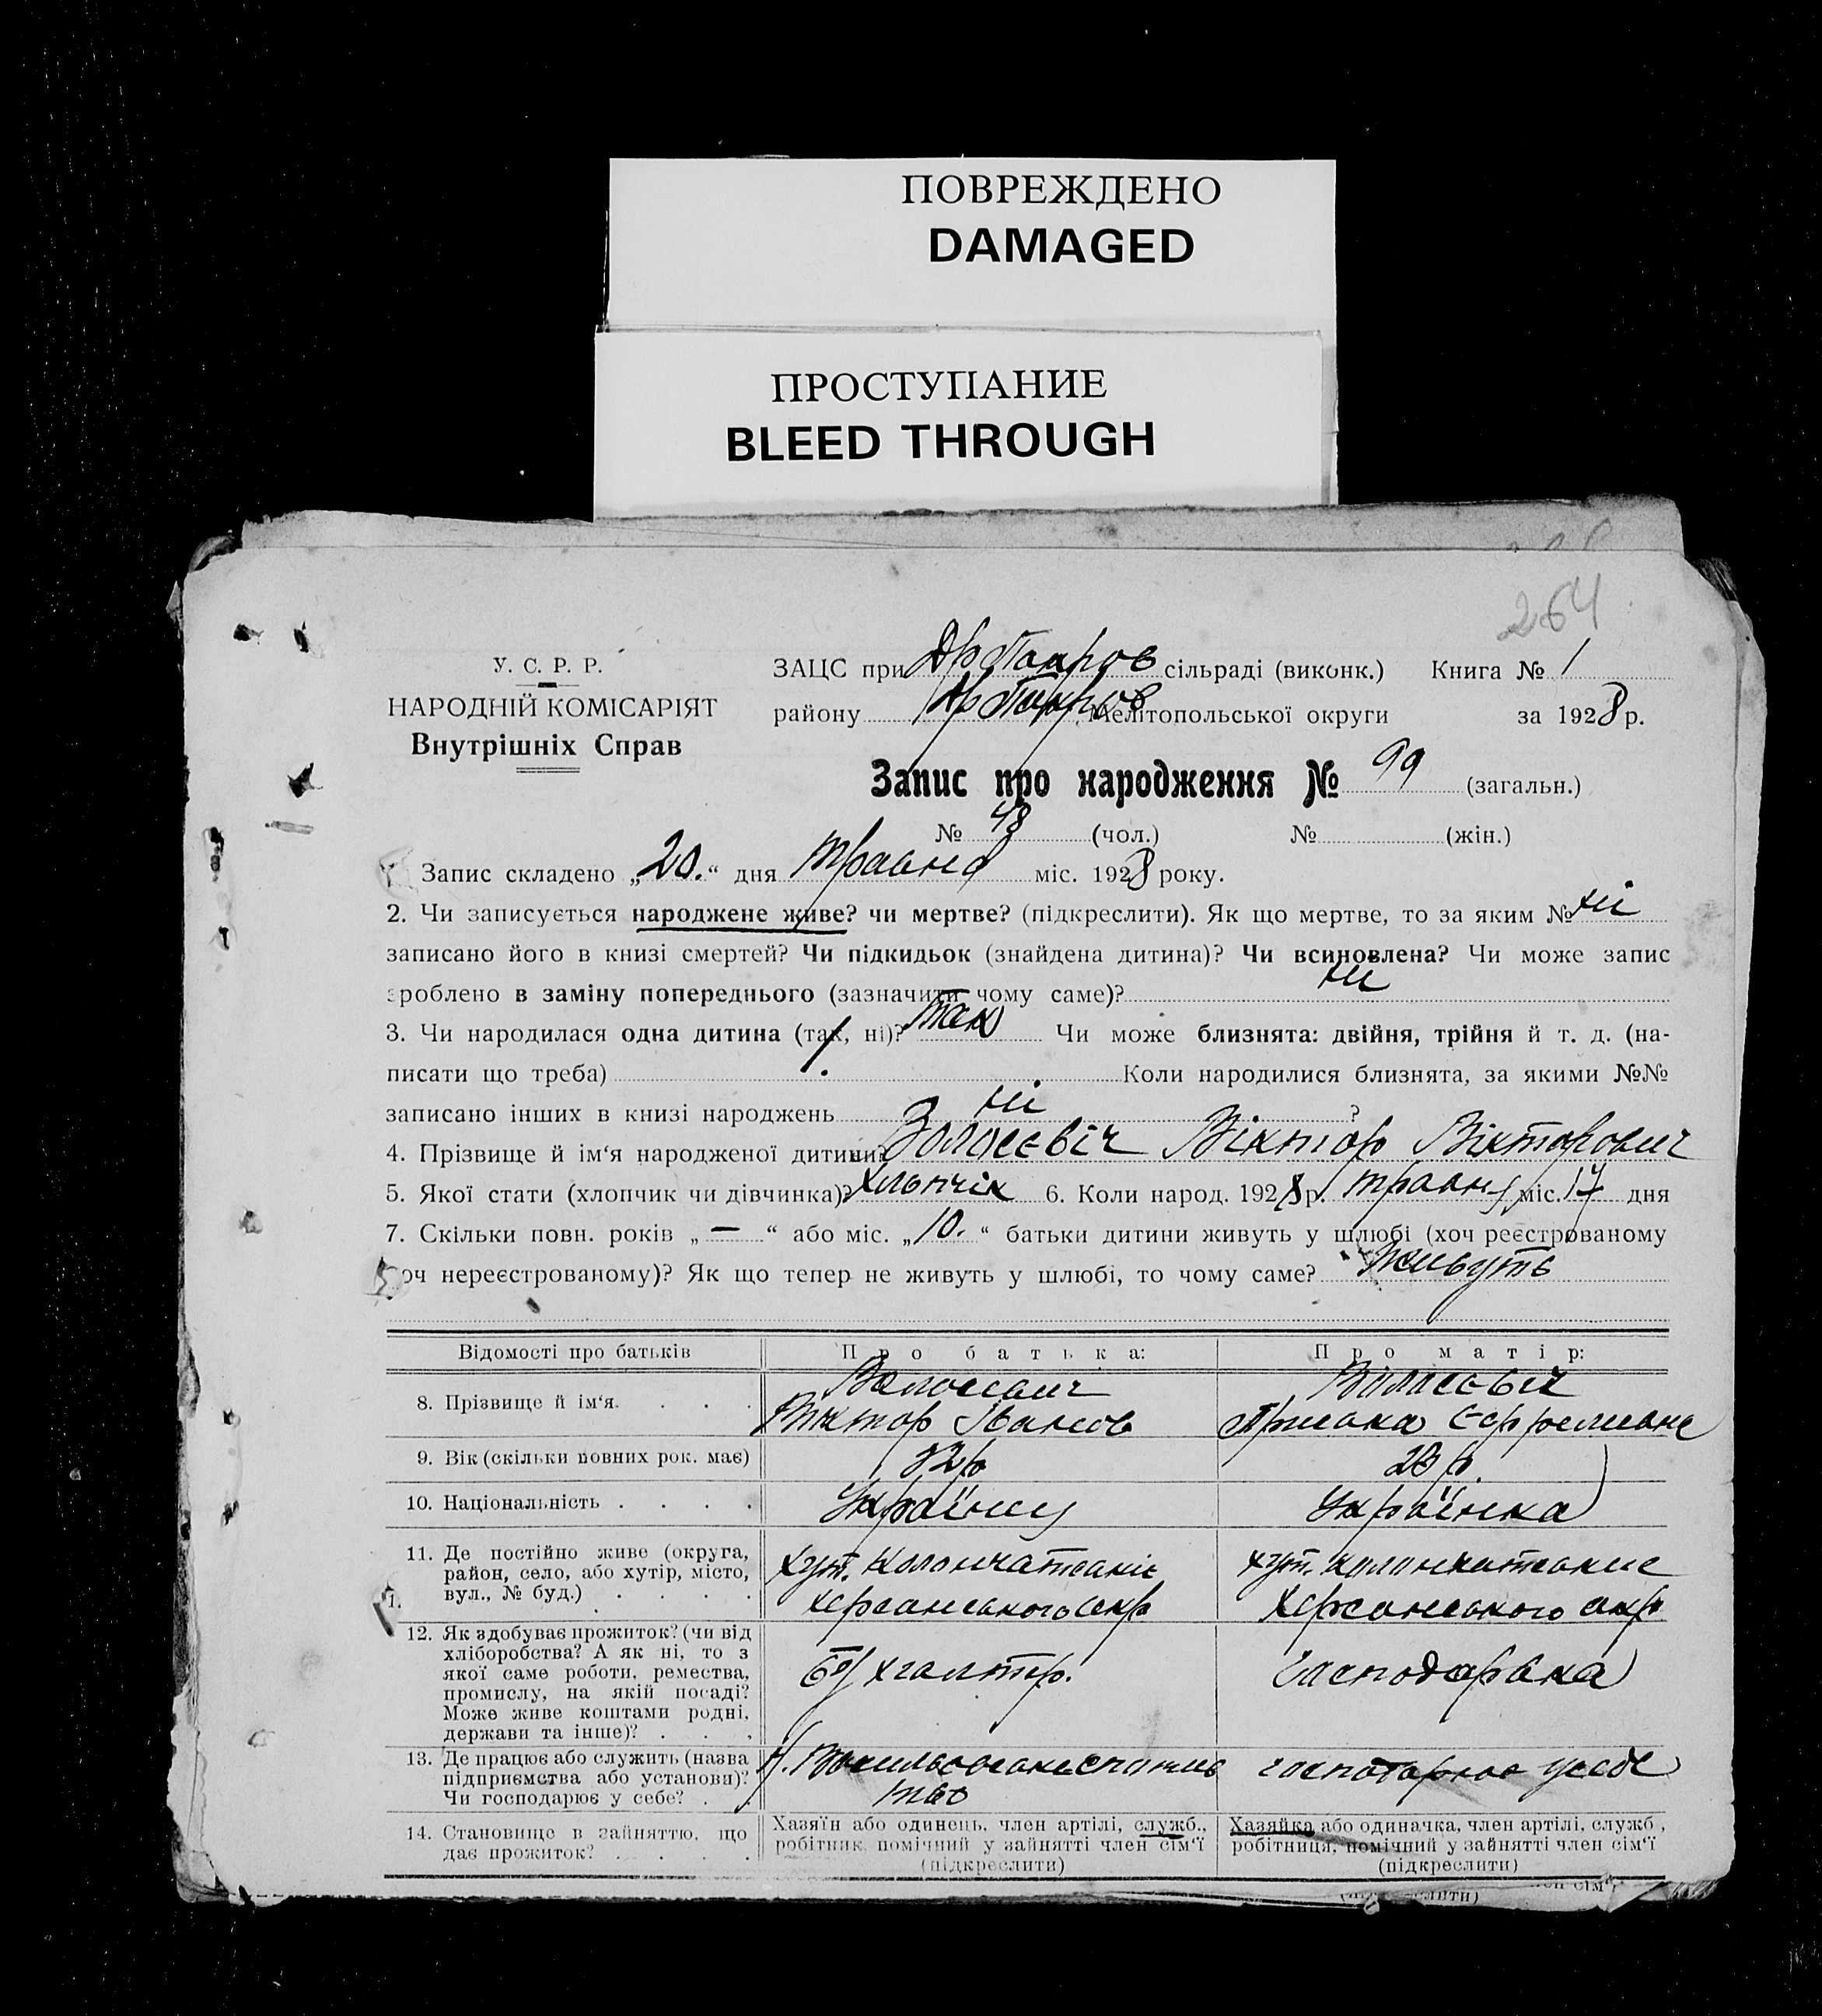 ПОВРЕЖДЕНО
DAMAGED
ПРОСТУПАНИЕ
BLEED THROUGH
264
У. С. Р. Р.
НАРОДНІЙ КОМІСАРІЯТ
Внутрішніх Справ
ЗАЦС при сільраді (виконк.) Книга № 1
району Мелітопольської округи за 1928 р.
Запис про народження № 99 (загальн.)
№ 48 (чол.) № (жін.)
Запис складено „20.“ дня травня міс. 1928 року.
2. Чи записується народжене живе? чи мертве? (підкреслити). Як що мертве, то за яким № ні
записано його в книзі смертей? Чи підкидьок (знайдена дитина)? Чи всиновлена? Чи може запис
зроблено в заміну попереднього (зазначити чому саме)? ні
3. Чи народилася одна дитина (так, ні)? так Чи може близнята: двійня, трійня й т. д. (на-
писати що треба) Коли народилися близнята, за якими №№
записано інших в книзі народжень ні ?
4. Прізвище й ім‘я народженої дитини Віктор Вікторович
5. Якої стати (хлопчик чи дівчинка)? хлопчік 6. Коли народ. 1928 р. травня міс. 17 дня
7. Скільки повн. років „ — “ або міс. „10.“ батьки дитини живуть у шлюбі (хоч реєстрованому
хоч нереєстрованому)? Як що тепер не живуть у шлюбі, то чому саме? живуть
Відомості про батьків Про батька: Про матір:
8. Прізвище й ім‘я. . . .
Віктор Іванов
9. Вік (скільки повних рок. має) 32 р 20 р.
10. Національність . . . . Українец Українка
11. Де постійно живе (округа, район, село, або хутір, місто, вул., № буд.) . . . . хут.
Херсонського окр
хут.
Херсонського окр
12. Як здобуває прожиток? (чи від хліборобства? А як ні, то з якої саме роботи, ремества, промислу, на якій посаді? Може живе коштами родні, держави та інше)? . . . бухгалтер. господарька
13. Де працює або служить (назва підприємства або установи)? Чи господарює у себе? . .
господарює у себе
14. Становище в зайняттю, що дає прожиток? . . . .
Хазяїн або одинець, член артілі, служб.,
робітник, помічний у зайнятті член сім‘ї
(підкреслити)
Хазяйка або одиначка, член артілі, служб.,
робітниця, помічний у зайнятті член сім‘ї
(підкреслити)